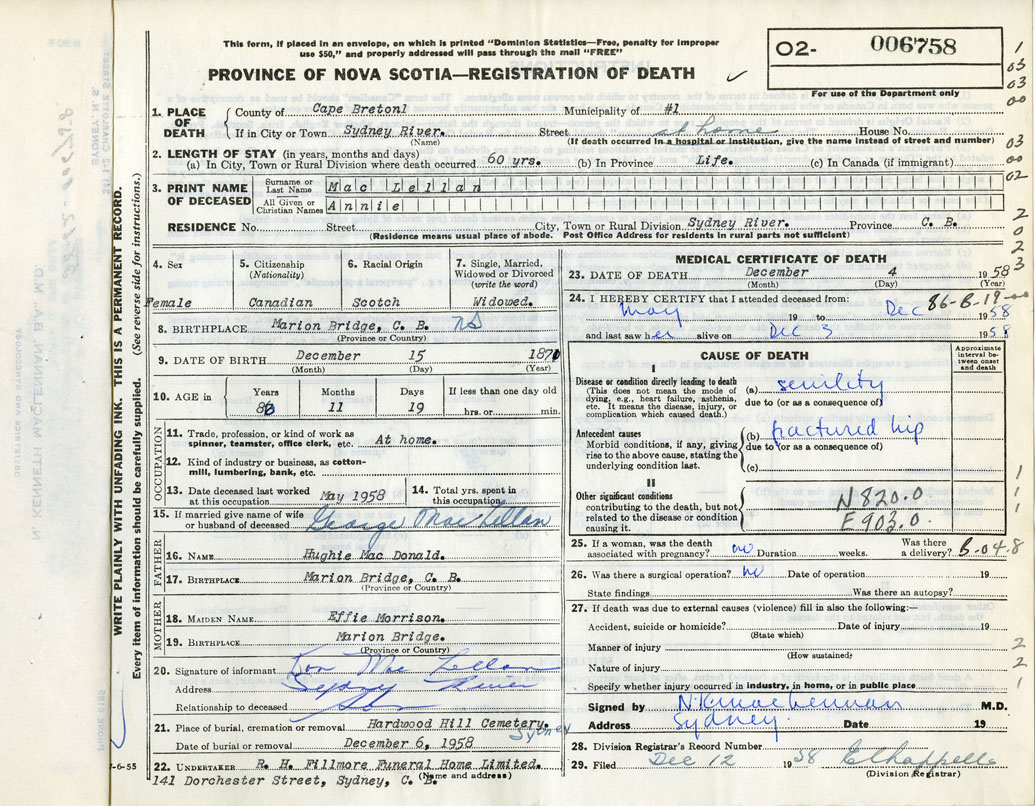 This form, if placed in an envelope, on which is printed "Dominion Statistics—Free, penalty for improper
use $50," and properly addressed will pass through the mail "FREE"
O2- 006758
For use of the Department only
PROVINCE OF NOVA SCOTIA—REGISTRATION OF DEATH
1. PLACE OF DEATH
County of Cape Bretonl Municipality of #1
If in City or Town Sydney River. Street at home House No.
(Name) (If death occurred in a hospital or institution, give the name instead of street and number)
2. LENGTH OF STAY (in years, months and days)
(a) In City, Town or Rural Division where death occurred 60 yrs. (b) In Province Life. (c) In Canada (if immigrant)
3. PRINT NAME OF DECEASED
Surname or Last Name Mac Lellan
All Given or Christian Names Annie
RESIDENCE No. Street City, Town or Rural Division Sydney River. Province C. B.
(Residence means usual place of abode. Post Office Address for residents in rural parts not sufficient)
WRITE PLAINLY WITH UNFADING INK. THIS IS A PERMANENT RECORD.
Every item of information should be carefully supplied. (See reverse side for instructions.)
4. Sex
Female
5. Citizenship
(Nationality)
Canadian
6. Racial Origin
Scotch
7. Single, Married,
Widowed or Divorced
(write the word)
Widowed.
8. BIRTHPLACE Marion Bridge, C. B. NS
(Province or Country)
9. DATE OF BIRTH December 15 1871
(Month) (Day) (Year)
10. AGE in
Years Months Days If less than one day old
86 11 19 hrs. or min.
OCCUPATION
11. Trade, profession, or kind of work as
spinner, teamster, office clerk, etc. At home.
12. Kind of industry or business, as cotton-
mill, lumbering, bank, etc.
13. Date deceased last worked
at this occupation May 1958
14. Total yrs. spent in
this occupation
15. If married give name of wife
or husband of deceased George Mac Lellan
FATHER
16. NAME Hughie Mac Donald.
17. BIRTHPLACE Marion Bridge, C. B.
(Province or Country)
MOTHER
18. MAIDEN NAME Effie Morrison.
19. BIRTHPLACE Marion Bridge.
(Province or Country)
20. Signature of informant Mac Lellan
Address Sydney River
Relationship to deceased Son
21. Place of burial, cremation or removal Hardwood Hill Cemetery. Sydney
Date of burial or removal December 6, 1958
22. UNDERTAKER R. H. Fillmore Funeral Home Limited.
141 Dorchester Street, Sydney, C. B. (Name and address)
-6-55
MEDICAL CERTIFICATE OF DEATH
23. DATE OF DEATH December 4 1958
(Month) (Day) (Year)
24. I HEREBY CERTIFY that I attended deceased from: 86-B-19-00
May 19 to Dec 1958
and last saw her alive on Dec 3 1958
CAUSE OF DEATH
Approximate
interval be-
tween onset
and death
I
Disease or condition directly leading to death
(This does not mean the mode of
dying, e.g., heart failure, asthenia,
etc. It means the disease, injury, or
complication which caused death.)
(a) senility
due to (or as a consequence of)
Antecedent causes
Morbid conditions, if any, giving
rise to the above cause, stating the
underlying condition last.
(b) fractured hip
due to (or as a consequence of)
(c)
II
Other significant conditions
contributing to the death, but not
related to the disease or condition
causing it.
N 820.0
E 903.0.
25. If a woman, was the death
associated with pregnancy? no Duration weeks. Was there
a delivery? B-04-8
26. Was there a surgical operation? no Date of operation 19
State findings Was there an autopsy?
27. If death was due to external causes (violence) fill in also the following:—
Accident, suicide or homicide? Date of injury 19
(State which)
Manner of injury
(How sustained)
Nature of injury
Specify whether injury occurred in industry, in home, or in public place
Signed by N. K. MacLennan M.D.
Address Sydney. Date 19
28. Division Registrar's Record Number
29. Filed Dec 12 1958 E Chappell
(Division Registrar)
1
03
03
00
03
00
02
2
0
2
3
1
1
1
2
2
1